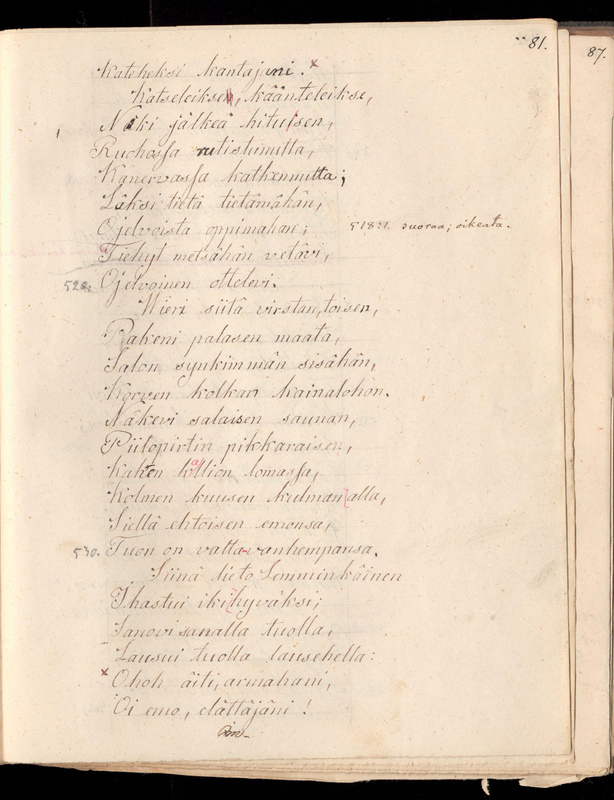 81.
87.
Kateheksi kantajani. x
Katseleiksen, käänteleikse,
Näki jälkeä hituisen,
Ruohossa rutistumitta,
Kanervassa katkennutta;
Läksi tietä tietämähän,
Ojelvoista oppimahan; 518:1. suoraa; oikeata.
Tiehyt metsähän vetävi,
520. Ojelvoinen ottelevi.
Wieri siitä virstan, toisen,
Pakeni palasen maata,
Salon synkimmän sisähän,
Korven kolkan kainalohon.
Näkevi salaisen saunan,
Piilopirtin pikkaraisen,
Kahen kallion lomassa,
Kolmen kuusen kulman alla,
Siellä ehtoisen emonsa,
530. Tuon on valta-vanhempansa.
Siinä lieto Lemminkäinen
Ihastui iki hyväksi;
Sanovi sanalla tuolla,
Lausui tuolla lausehella:
x Ohoh äiti, armahani,
Oi emo, elättäjäni!